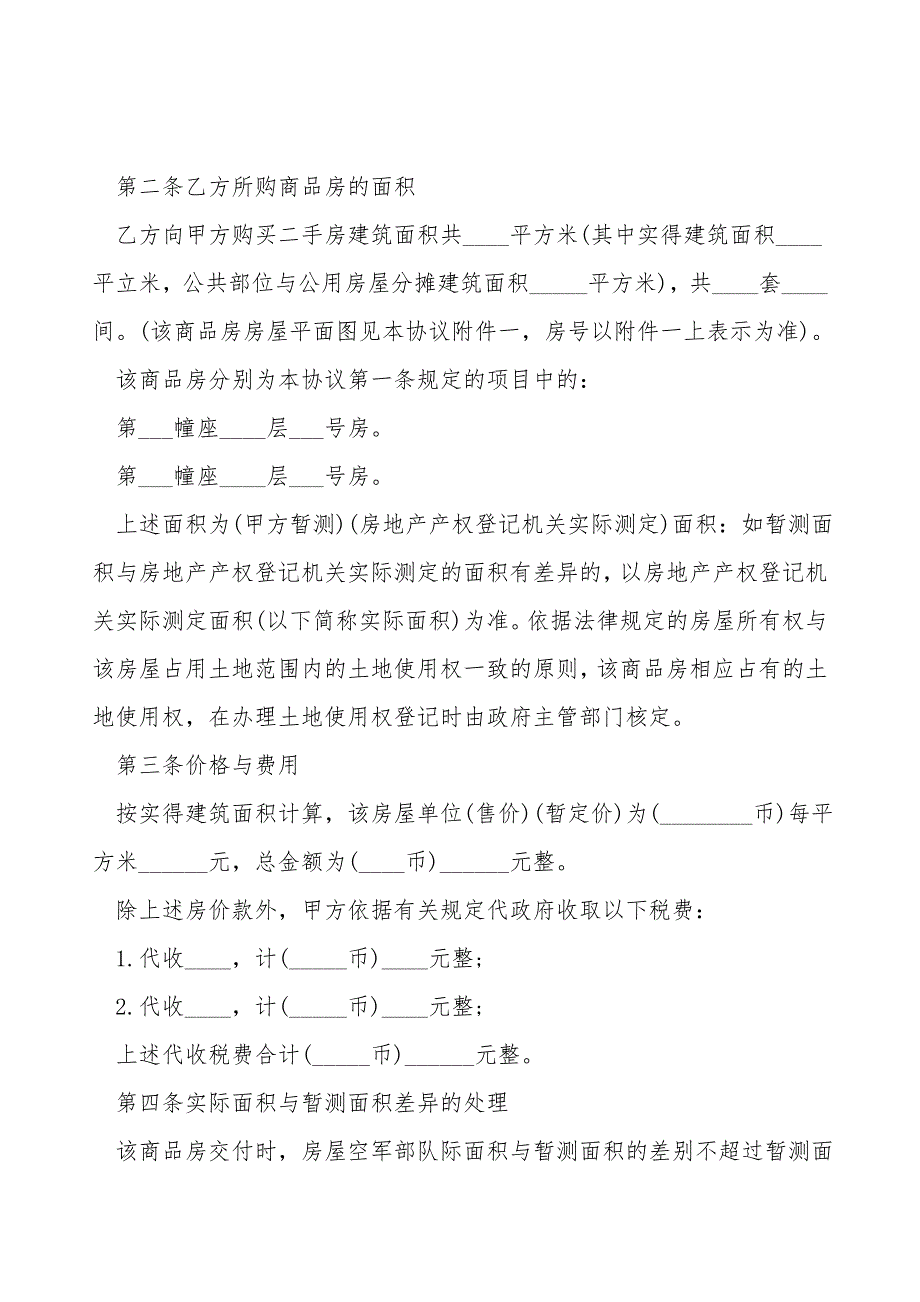 第二条乙方所购商品房的面积
乙方向甲方购买二手房建筑面积共____平方米(其中实得建筑面积____
平立米，公共部位与公用房屋分摊建筑面积_____平方米)，共____套____
间。(该商品房房屋平面图见本协议附件一，房号以附件一上表示为准)。
该商品房分别为本协议第一条规定的项目中的：
第___幢座____层___号房。
第___幢座____层___号房。
上述面积为(甲方暂测)(房地产产权登记机关实际测定)面积：如暂测面
积与房地产产权登记机关实际测定的面积有差异的，以房地产产权登记机
关实际测定面积(以下简称实际面积)为准。依据法律规定的房屋所有权与
该房屋占用土地范围内的土地使用权一致的原则，该商品房相应占有的土
地使用权，在办理土地使用权登记时由政府主管部门核定。
第三条价格与费用
按实得建筑面积计算，该房屋单位(售价)(暂定价)为(________币)每平
方米______元，总金额为(____币)______元整。
除上述房价款外，甲方依据有关规定代政府收取以下税费：
1.代收____，计(_____币)____元整;
2.代收____，计(_____币)____元整;
上述代收税费合计(_____币)______元整。
第四条实际面积与暂测面积差异的处理
该商品房交付时，房屋空军部队际面积与暂测面积的差别不超过暂测面